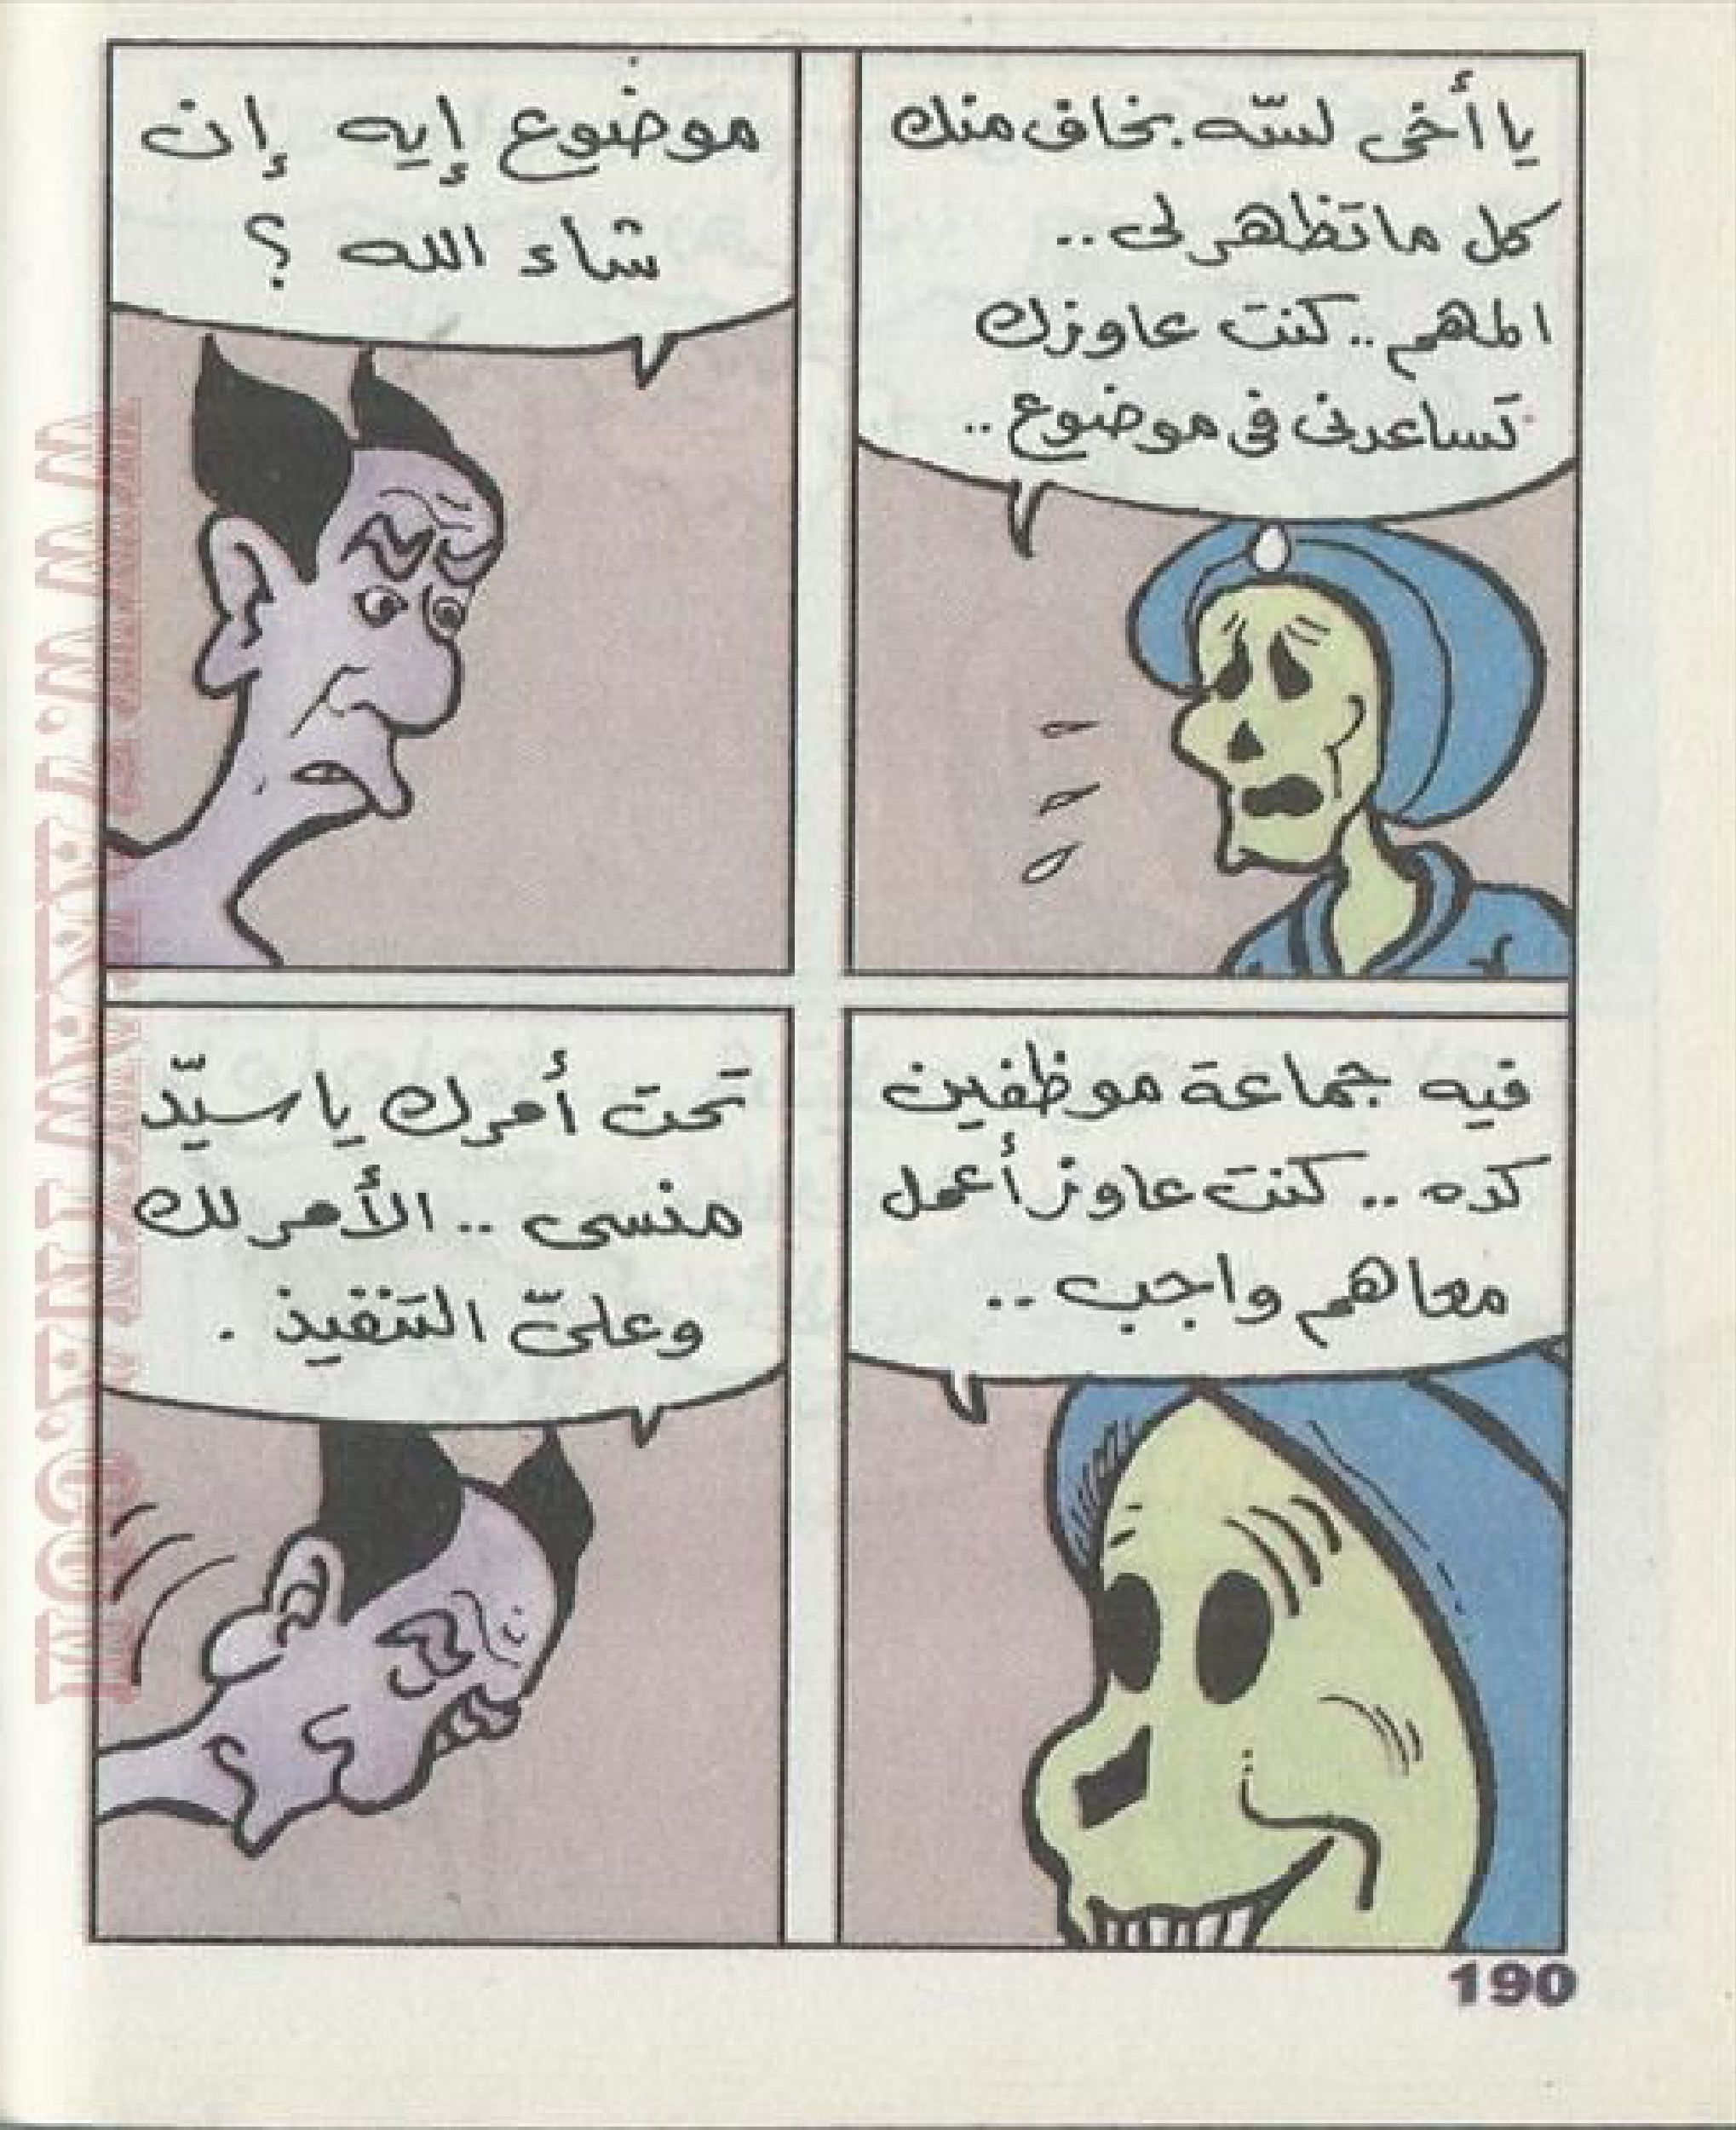 يا أخى لسّه بخاف منك
كل ما تظهرلى ..
المهم .. كنت عاوزك
تساعدنى فى موضوع ..
موضوع إيه إن
شاء الله ؟
فيه جماعة موظفين
كده .. كنت عاوز أعمل
معاهم واجب ..
تحت أمرك يا سيّد
منسى .. الأمر لك
وعلىّ التنفيذ .
190